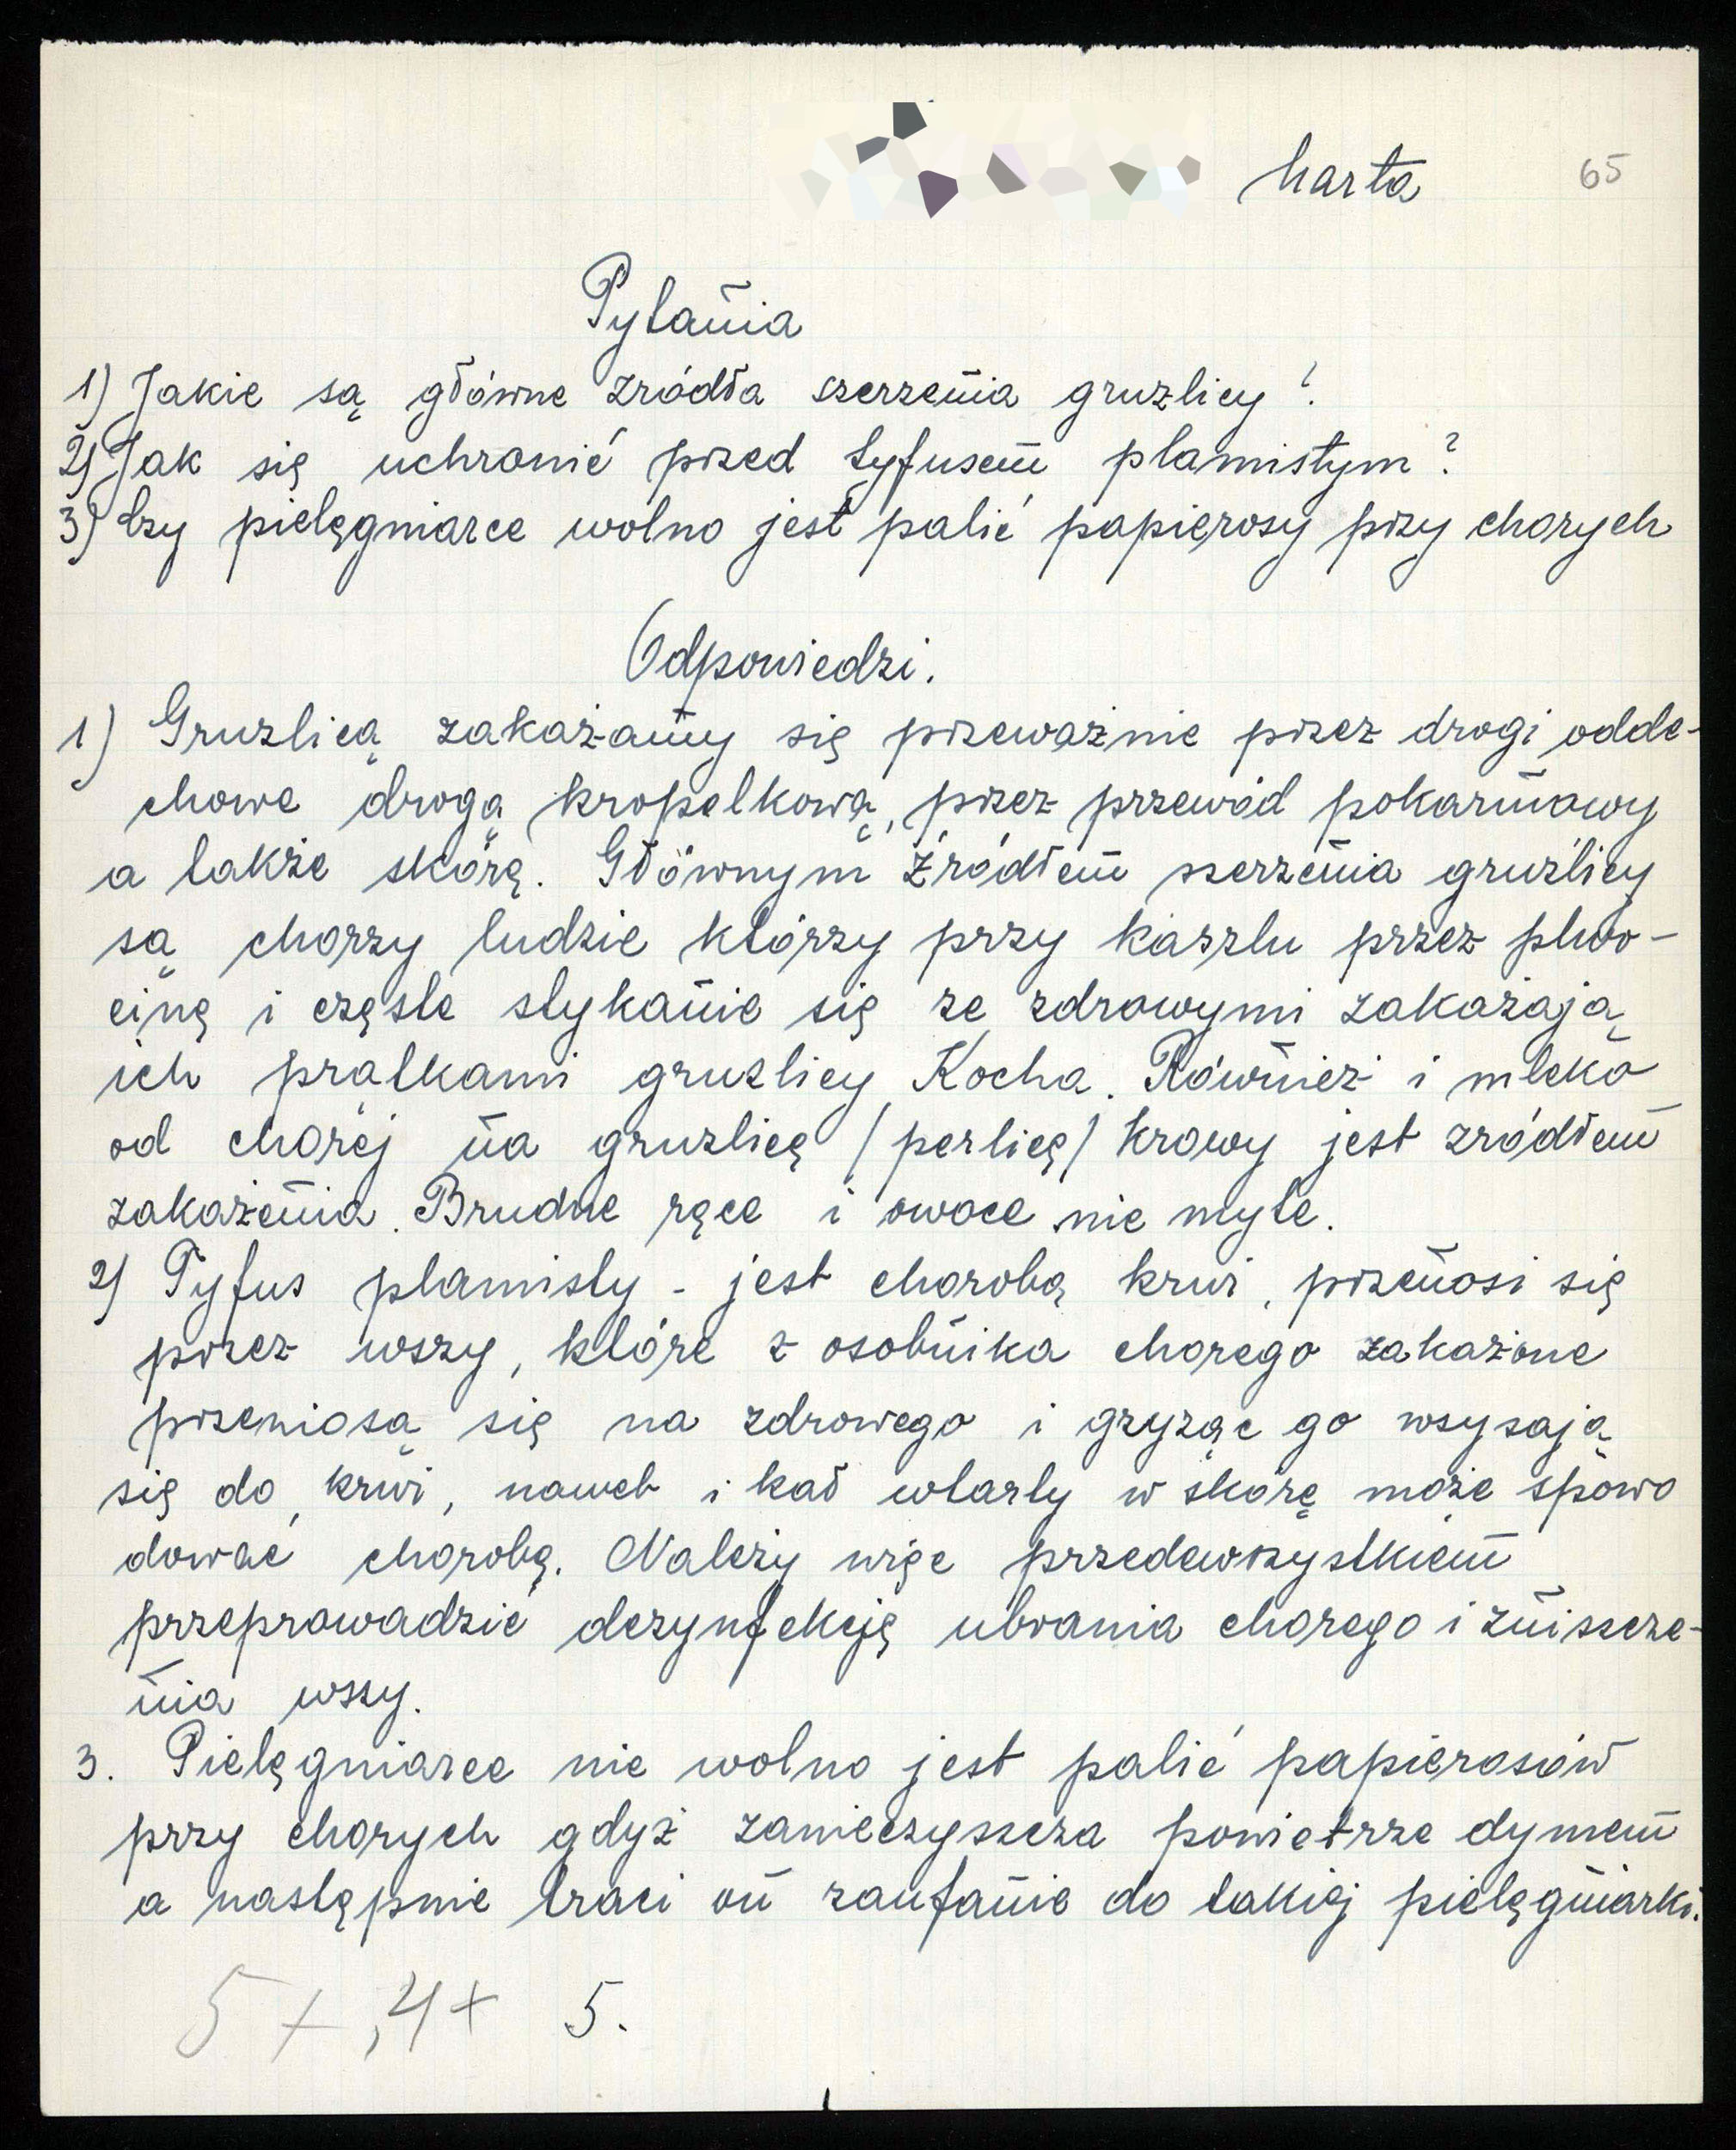 Marta 65
Pytania
1) Jakie są główne zródła szerzenia gruzlicy?
2) Jak się uchronić przed tyfusem plamistym?
3) Czy pielęgniarce wolno jest palić papierosy przy chorych
Odpowiedzi.
1) Gruzlicą zakażamy się przeważnie przez drogi odde-
chowe drogą kropelkową, przez przewód pokarmowy
a także skórę. Głównym źródłem szerzenia gruźlicy
są chorzy ludzie którzy przy kaszlu przez plwo-
cinę i częste stykanie się ze zdrowymi zakażają
ich prątkami gruzlicy Kocha. Również i mleko
od chorej na gruzlicę /perlicę/ krowy jest zródłem
zakażenia. Brudne ręce i owoce nie myte.
2) Tyfus plamisty - jest chorobą krwi, przenosi się
przez wszy, które z osobnika chorego zakażone
przeniosą się na zdrowego i gryząc go wsysają
się do krwi, nawet i kał wtarty w skórę może spowo
dować chorobę. Należy więc przedewszystkiem
przeprowadzić dezynfekcję ubrania chorego i zniszcze-
nia wszy.
3. Pielęgniarce nie wolno jest palić papierosów
przy chorych gdyż zanieczyszcza powietrze dymem
a następnie traci on zaufanie do takiej pielęgniarki.
5+, 4+ 5.